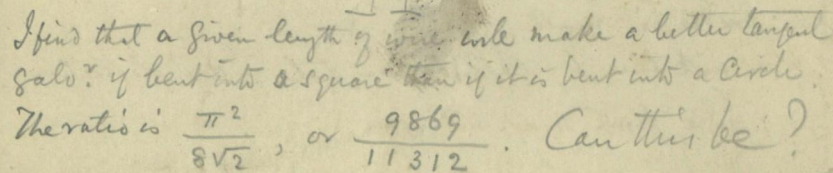 I find that a given length of wire will make a better tangent
galvr. if bent into a square than if it is bent into a Circle.
The ratio is π²/8√2, or 9869/11312. Can this be?